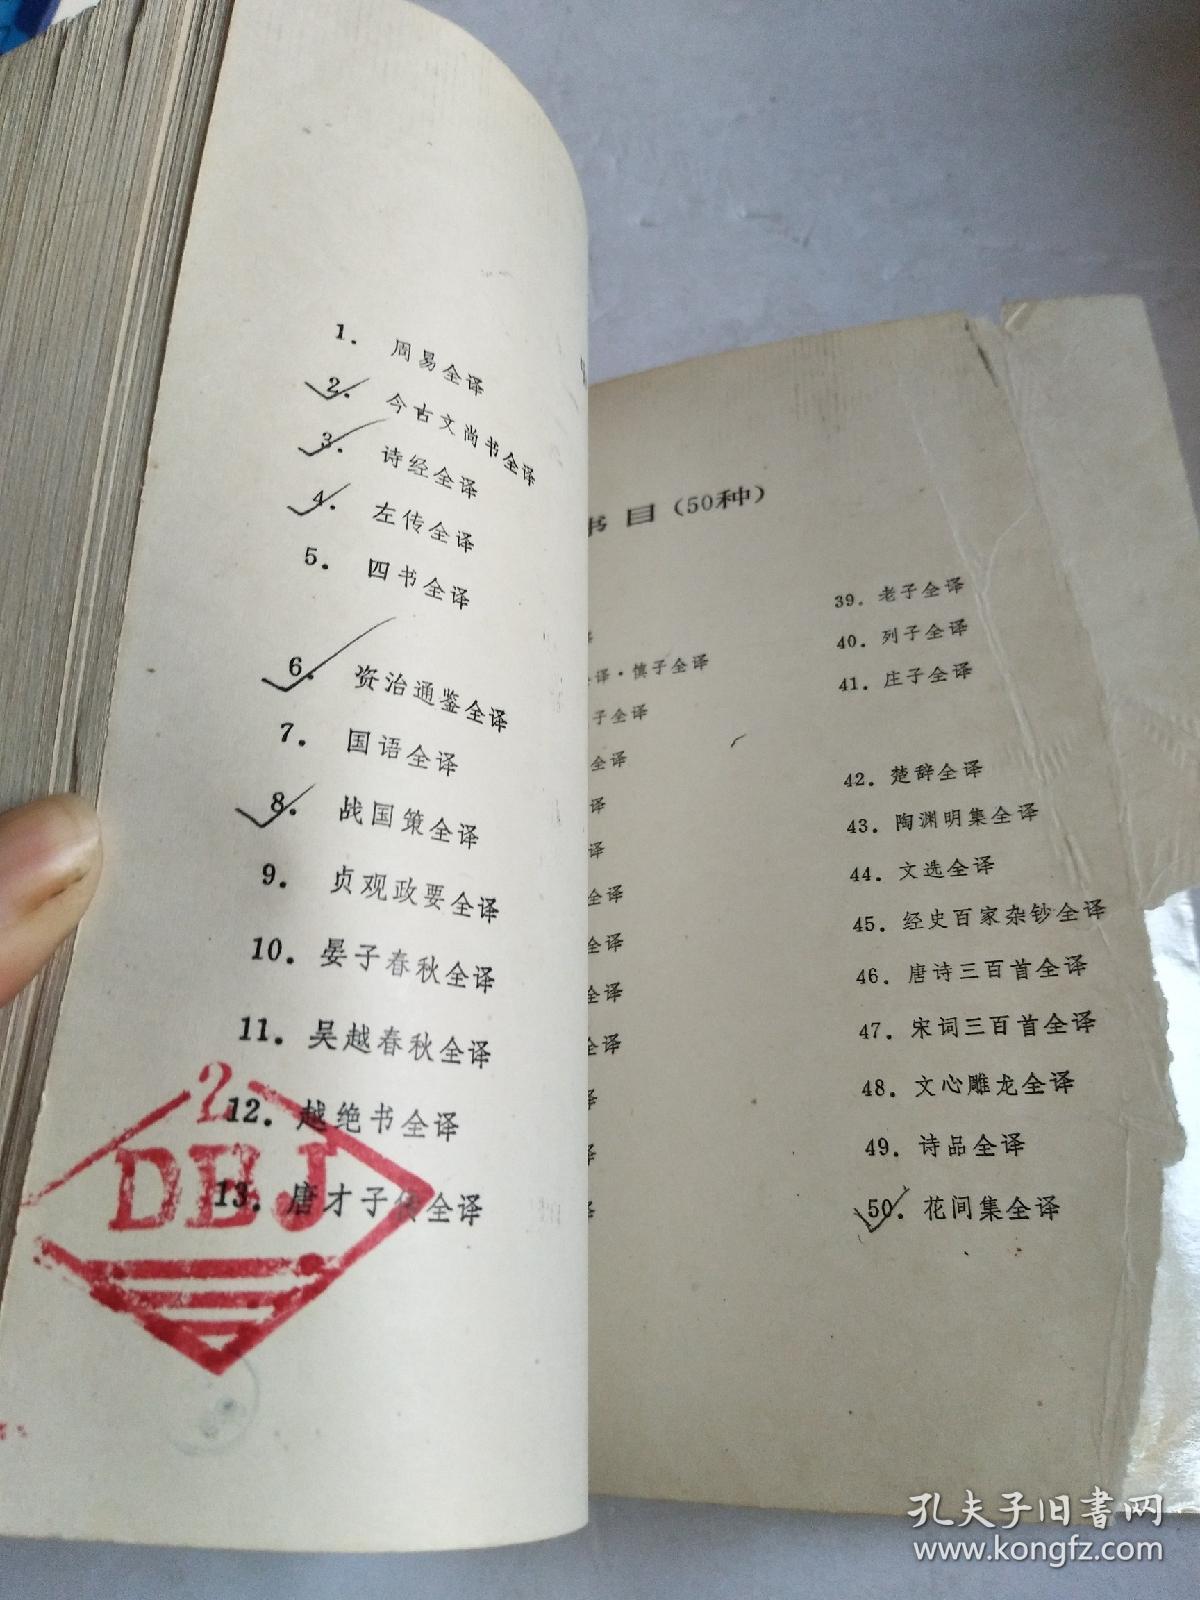 1. 周易全译
2. 今古文尚书全译
3. 诗经全译
4. 左传全译
5. 四书全译
6. 资治通鉴全译
7. 国语全译
8. 战国策全译
9. 贞观政要全译
10. 晏子春秋全译
11. 吴越春秋全译
12. 越绝书全译
13. 唐才子传全译
2
DBJ
书目(50种)
译·慎子全译
子全译
全译
译
译
全译
全译
全译
全译
39. 老子全译
40. 列子全译
41. 庄子全译
42. 楚辞全译
43. 陶渊明集全译
44. 文选全译
45. 经史百家杂钞全译
46. 唐诗三百首全译
47. 宋词三百首全译
48. 文心雕龙全译
49. 诗品全译
50. 花间集全译
孔夫子旧書网
www.kongfz.com